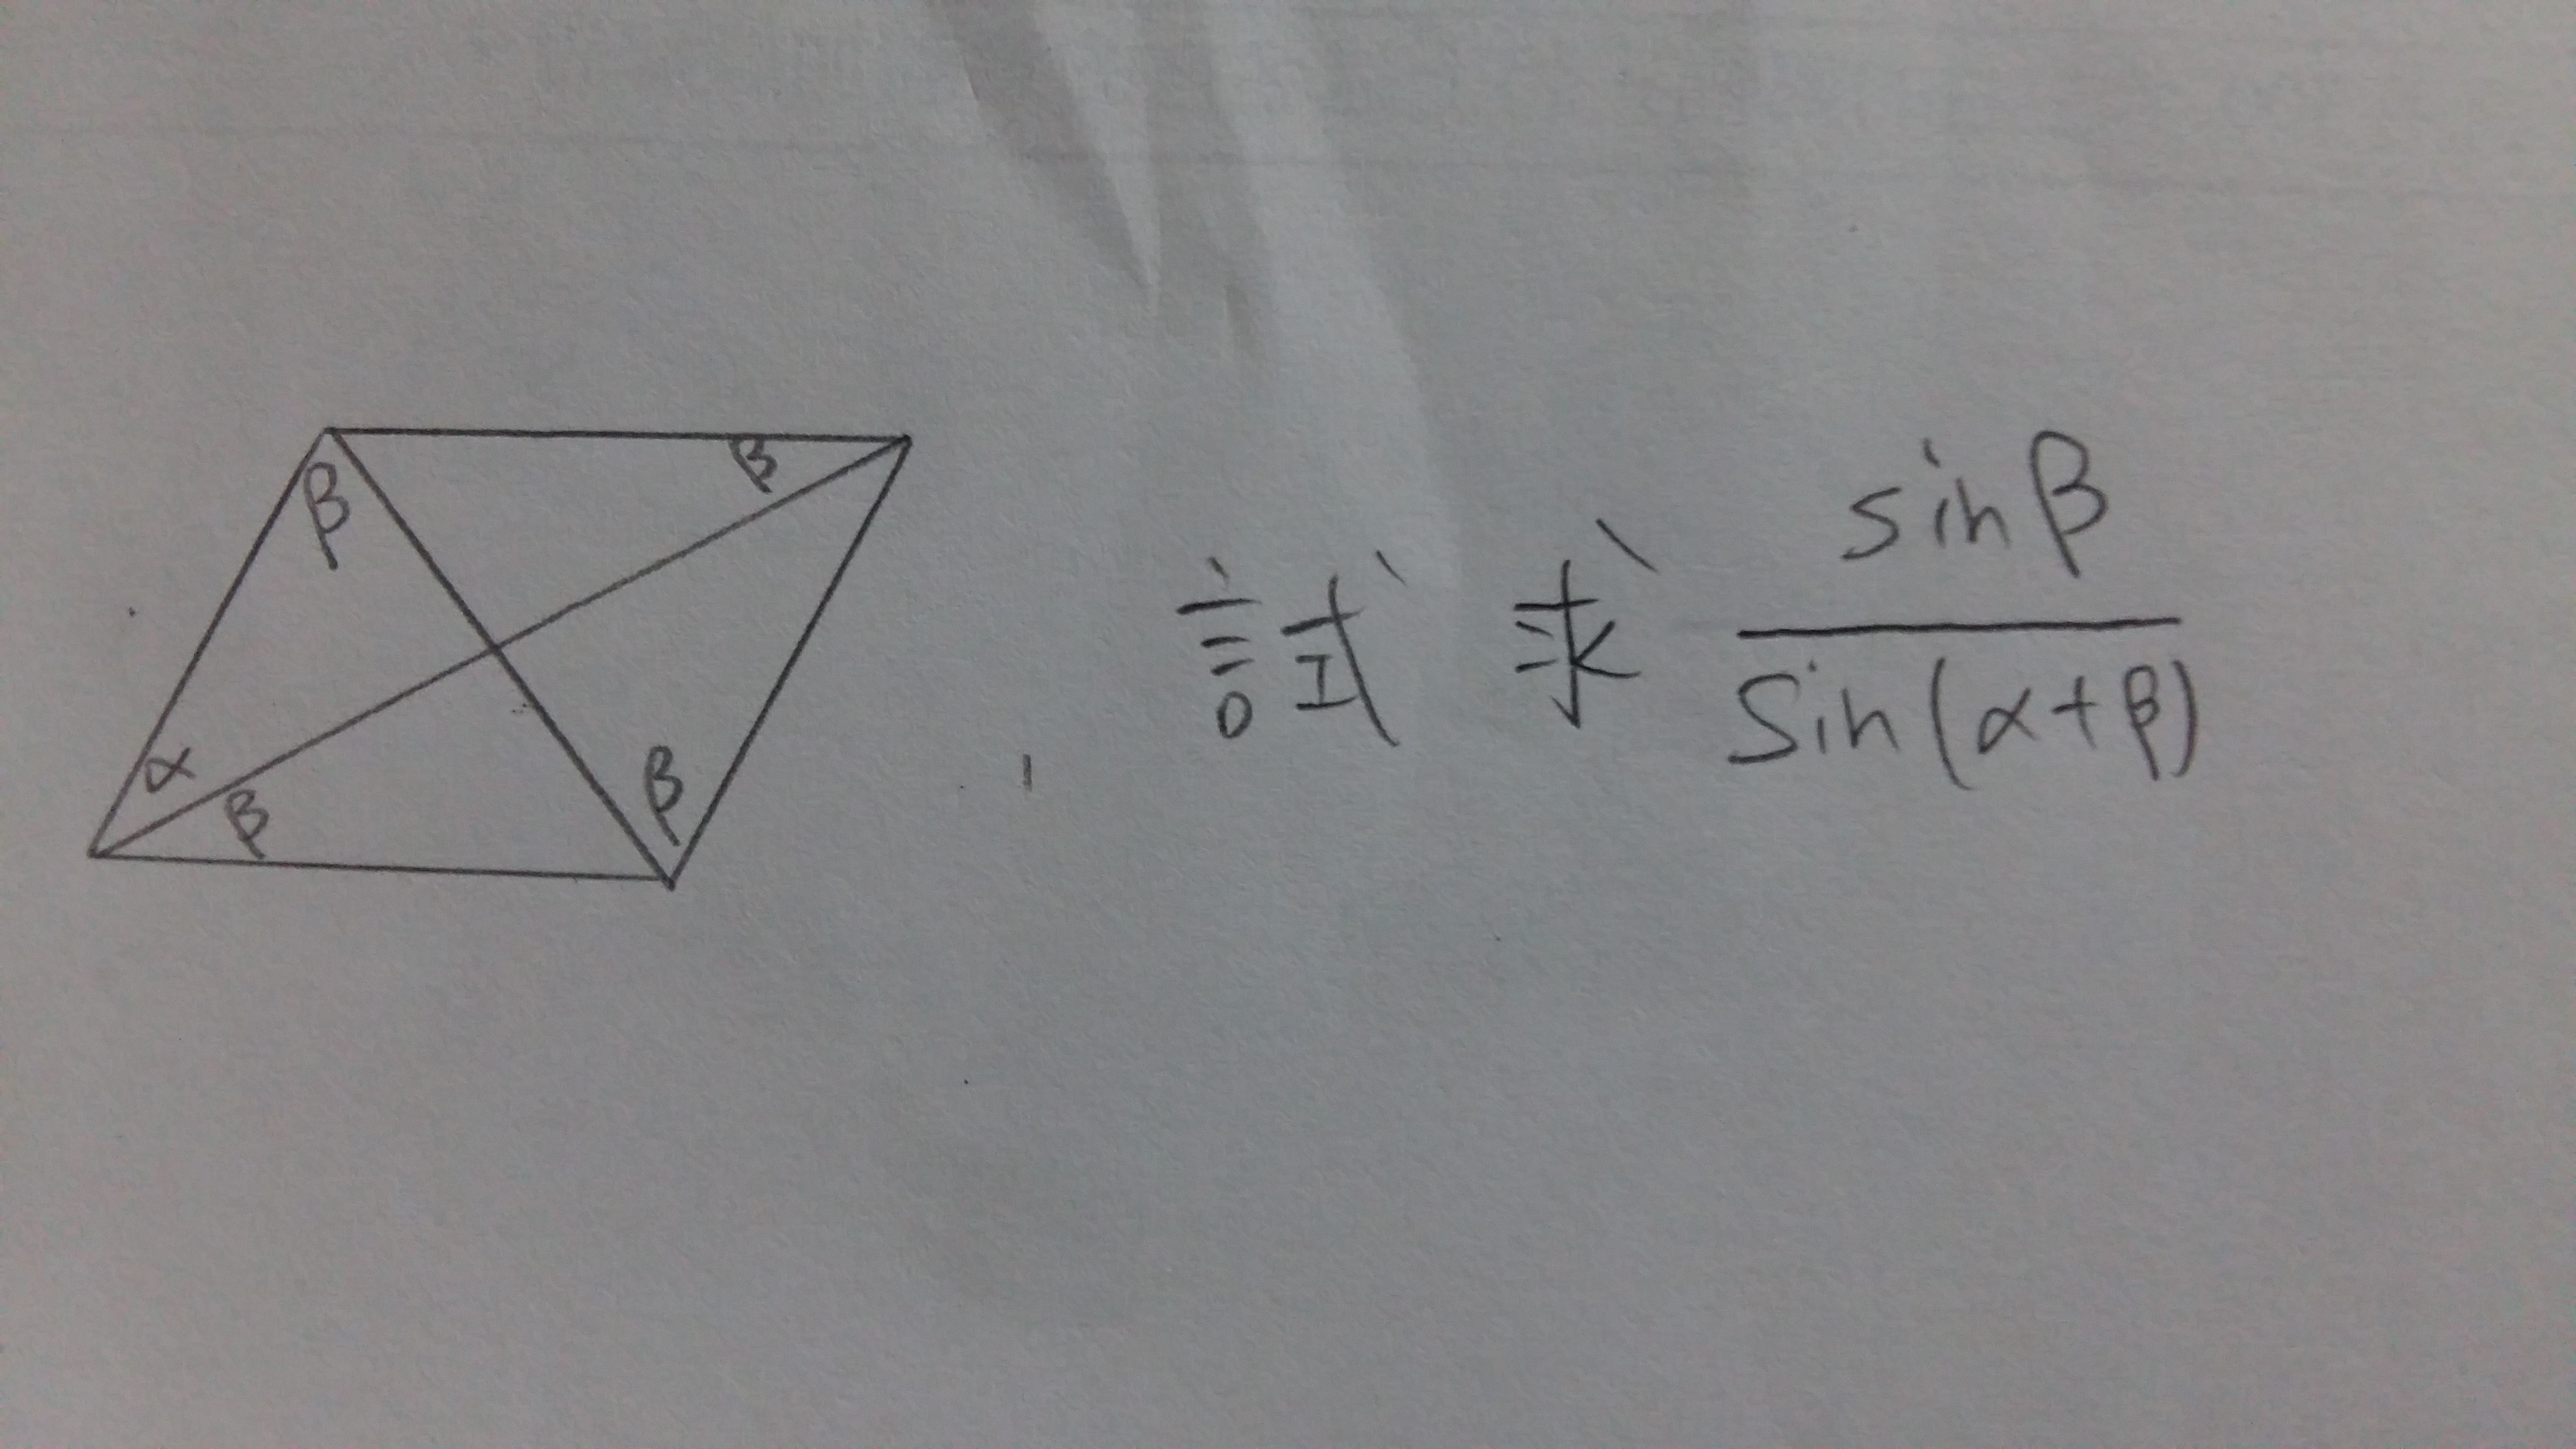 β
β
α
β
β
試求 sinβ / Sin(α+β)